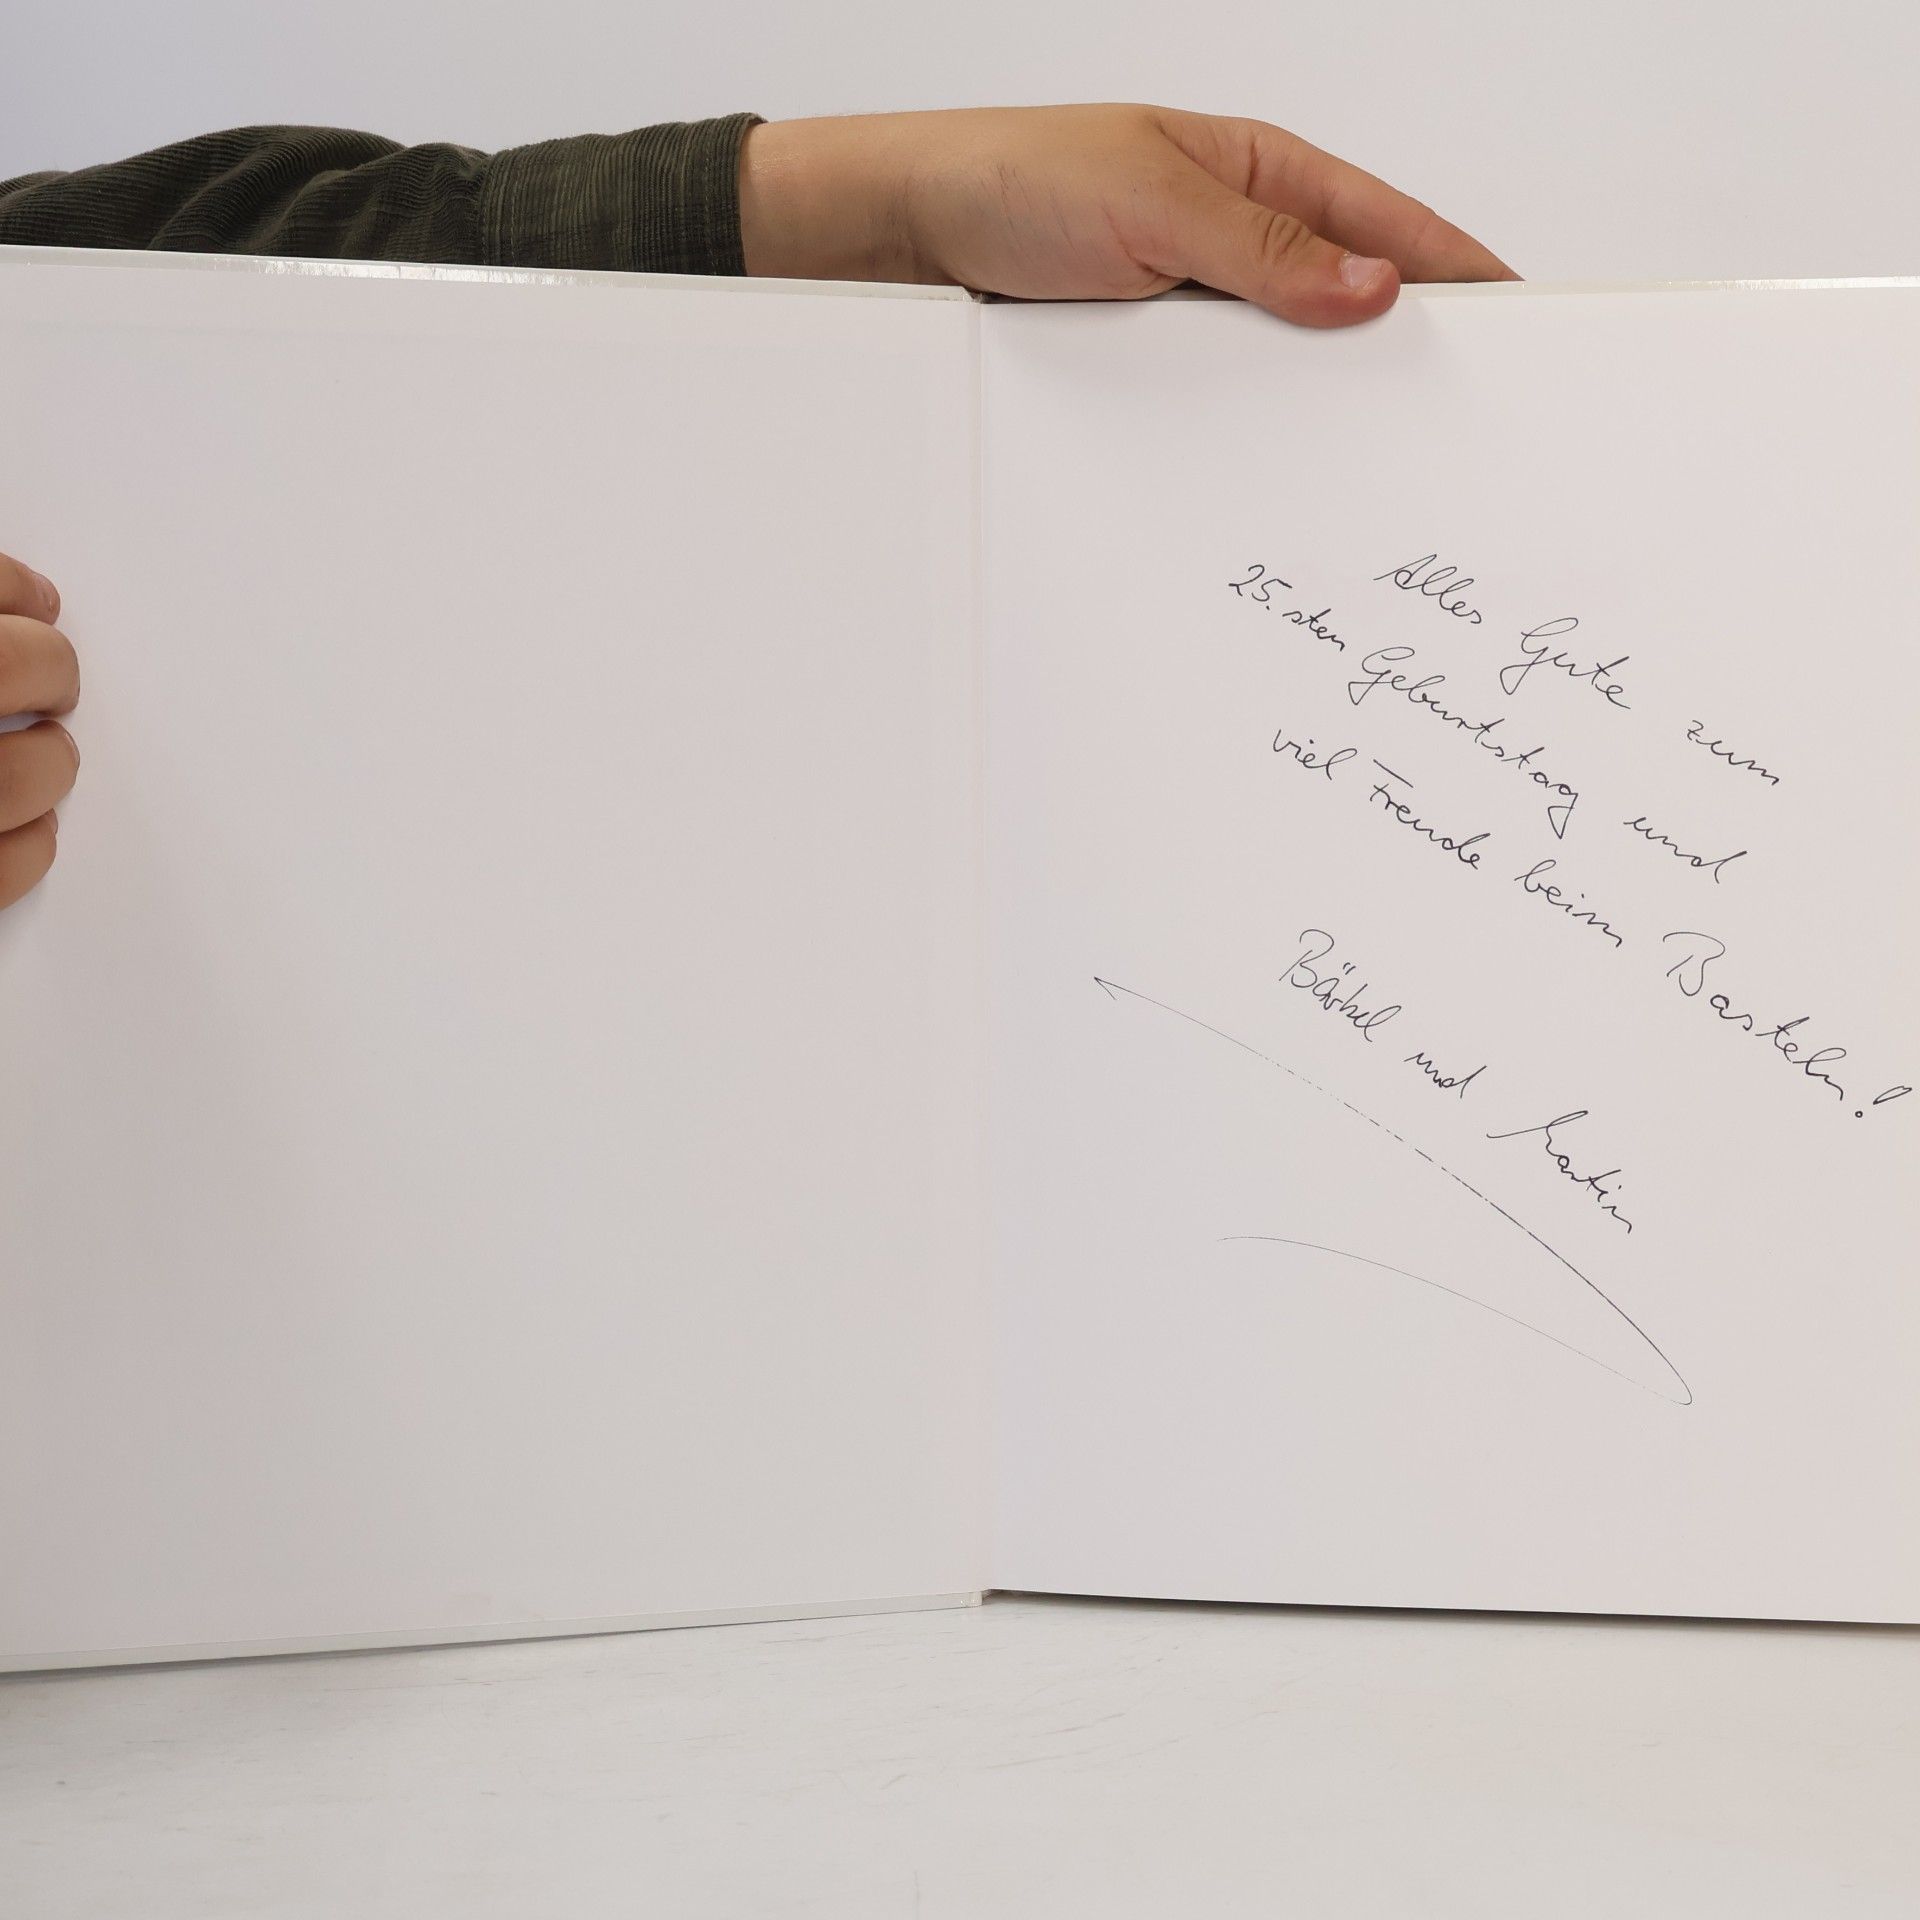 Alles Gute zum
25.sten Geburtstag und
viel Freude beim Basteln!
Bärbel und Martin